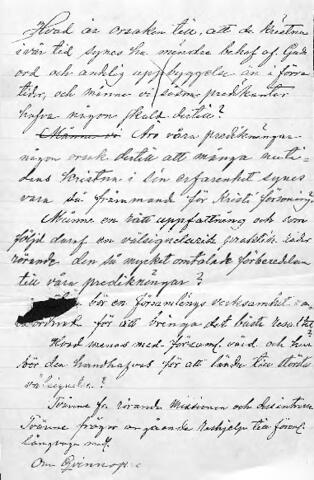 Hvad är orsaken till, att de kristna
i vår tid synes ha mindre behof af Guds
ord och andlig uppbyggelse än i förra
tider, och månne vi såsom predikanter
hafva någon skuld dertill?
Månne vi Äro våra predikningar
någon orsak dertill att många nuti-
dens kristna i sin erfarenhet synes
vara så främmande för Kristi försoning?
Månne en rätt uppfattning och som
följd deraf en välsignelserik praktisk
rörande den så mycket omtalade förberedelsen
till våra predikningar?
bör en församlings verksamhet
för att bringa det bästa resultat
Hvad menas med församl. vård och huru
bör den handhafvas för att lända till största
välsignelse?
Tvänne fr. rörande Missionen och
Tvänne frågor angående
Om